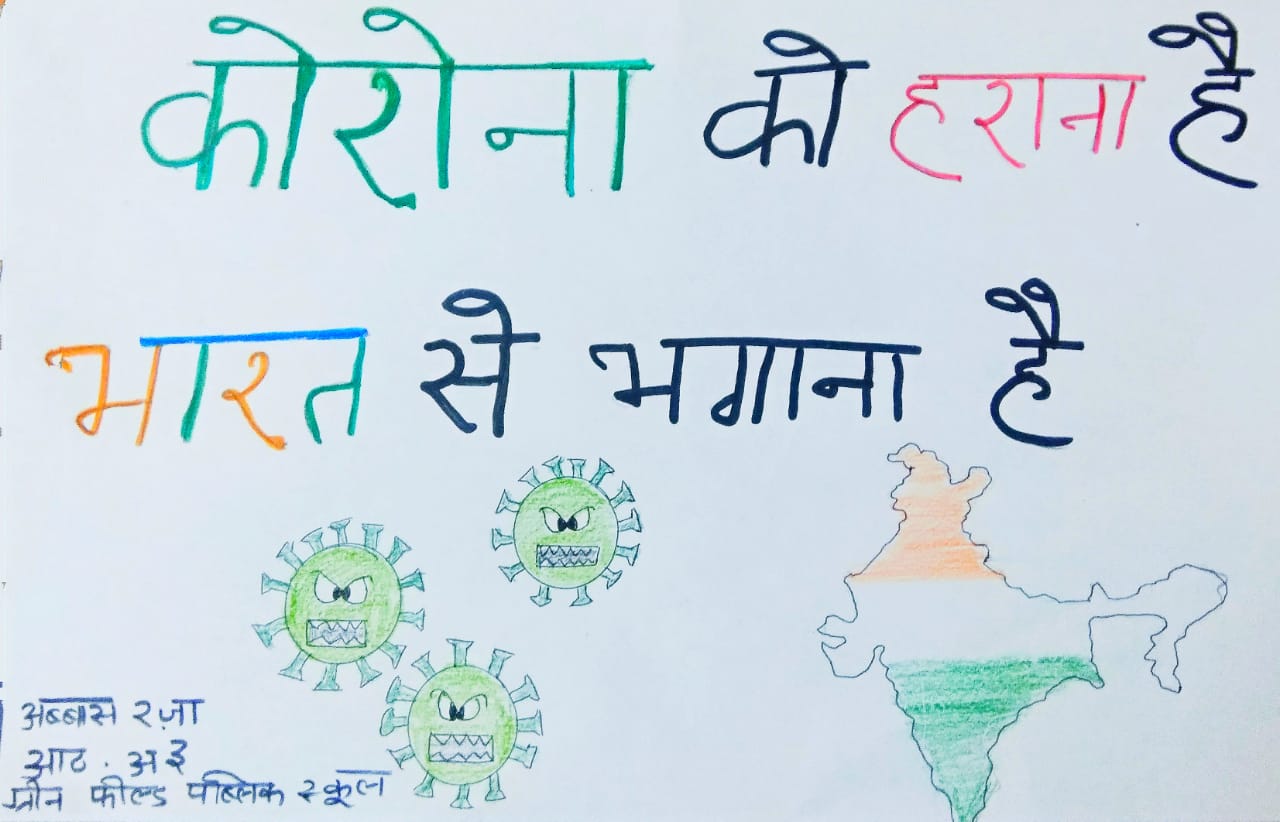 कोरोना को हराना है
भारत से भगाना है
अब्बास रज़ा
आठ . अ इ
ग्रीन फील्ड पब्लिक स्कूल